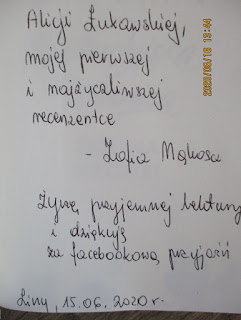 Alicji Łukawskiej,
mojej pierwszej
i najżyczliwszej
recenzentce
- Zofia Mąkosa
Życzę przyjemnej lektury
i dziękuję
za facebookową przyjaźń
Liny, 15.06.2020 r.
2020/06/18 13:44